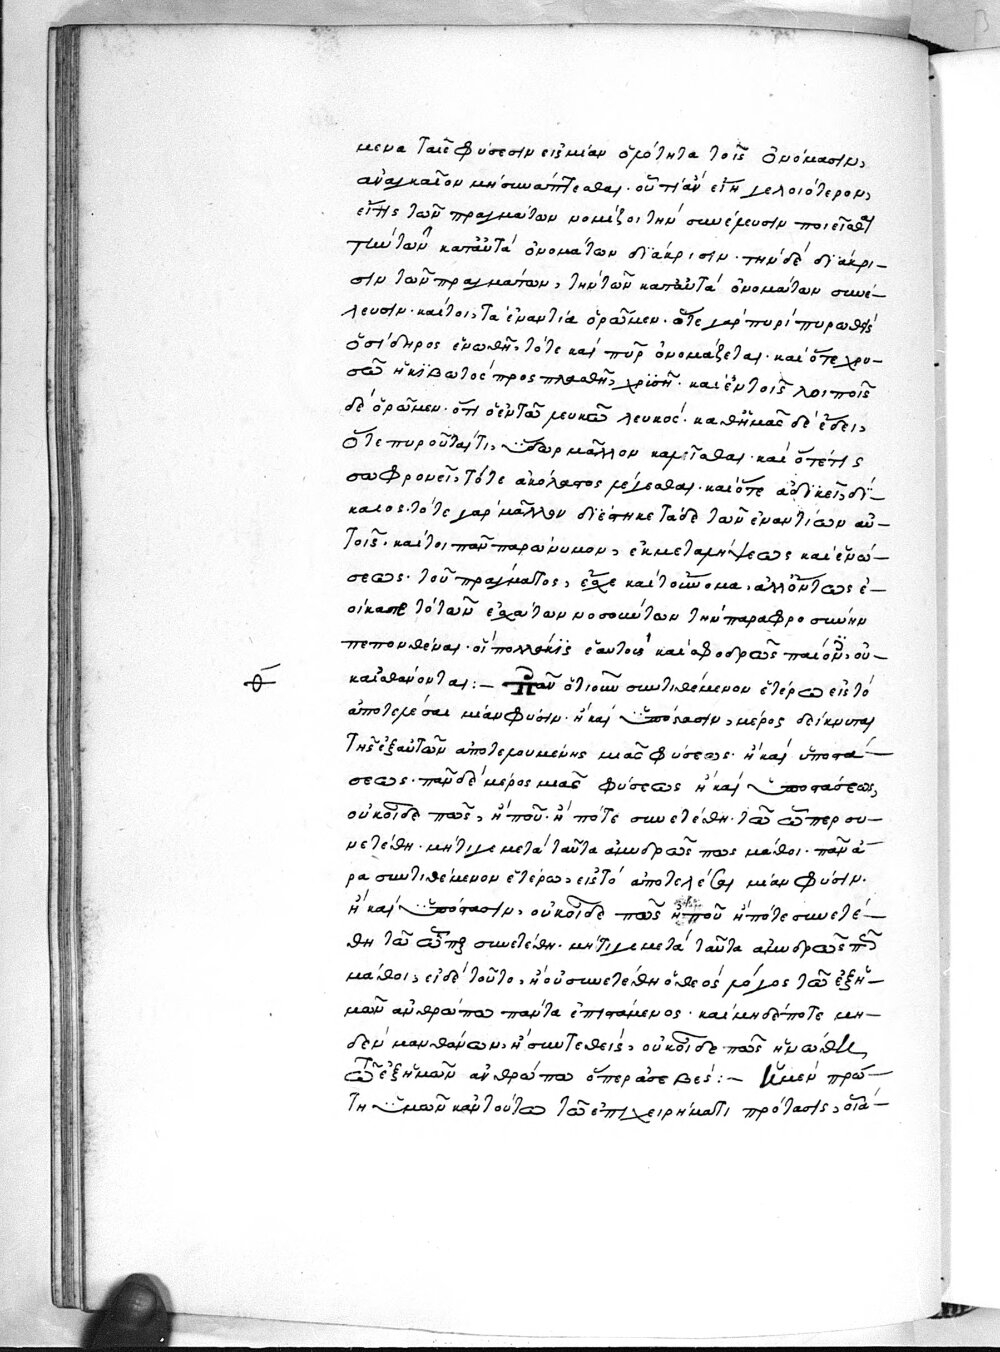 μενα ταῖς φύσεσιν εἰς μίαν ὁμότητα τοῖς ὀνόμασιν,
ἀναγκαῖον μὴ συνάπτεσθαι· οὔτι ἂν εἴη γελοιότερον,
εἴ τις τῶν πραγμάτων νομίζοι τὴν συνέλευσιν ποιεῖσθαι
τῶν κατ' αὐτὰ ὀνομάτων διάκρισιν· τὴν δὲ διάκρι-
σιν τῶν πραγμάτων, τὴν τῶν κατ' αὐτὰ ὀνομάτων συνέ-
λευσιν· καίτοι, τὰ ἐναντία ὁρῶμεν· ὅτε γὰρ πυρὶ πυρωθεὶς
ὁ σίδηρος ἑνωθῇ, τότε καὶ πῦρ ὀνομάζεται· καὶ ὅτε χρυ-
σῶ ἡ κιβωτὸς προσπλασθῇ, χρυσῆ· καὶ ἐν τοῖς λοιποῖς
δὲ ὁρῶμεν· ὅτι ὁ ἐν τῶ λευκῶ λευκός· καθ' ἡμᾶς δὲ ἔδει,
ὅτε πυροῦταί τι, ὕδωρ μᾶλλον καλεῖσθαι· καὶ ὅτε τίς
σωφρονεῖ, τότε ἀκόλαστος λέγεσθαι· καὶ ὅτε ἀδικεῖ, δί-
καιος· τότε γὰρ μᾶλλον διέστηκε τάδε τῶν ἐναντίων αὐ-
τοῖς· καίτοι πᾶν παρώνυμον, ἐκ μεταλήψεως καὶ ἑνώ-
σεως τοῦ πράγματος, ἔσχε καὶ τοὔνομα, ἀλλ' ὄντως ἐ-
οίκασι τὸ τῶν ἐσχάτων νοσούντων τὴν παραφροσύνην
πεπονθέναι· οἳ πολλάκις ἑαυτοὺς καὶ σφοδρῶς παίοντες, οὐ-
κ αἰσθάνονται:— Πᾶν ὁτιοῦν συντιθέμενον ἑτέρω εἰς τὸ
ἀποτελέσαι μίαν φύσιν· ἢ καὶ ὑπόστασιν, μέρος δείκνυται
τῆς ἐξ αὐτῶν ἀποτελουμένης μιᾶς φύσεως· ἢ καὶ ὑποστά-
σεως· πᾶν δὲ μέρος μιᾶς φύσεως ἢ καὶ ὑποστάσεως,
οὐκ οἶδε πῶς, ἢ ποῦ· ἢ πότε συνετέθη· τῶ ὧπερ συ-
νετέθη· μήτι γε μετὰ ταῦτα ἀμυδρῶς πως μάθοι· πᾶν ἄ-
ρα συντιθέμενον ἑτέρω, εἰς τὸ ἀποτελέσαι μίαν φύσιν·
ἢ καὶ ὑπόστασιν, οὐκ οἶδε πῶς ἢ ποῦ ἢ πότε συνετέ-
θη τῶ ὧπερ συνετέθη· μήτι γε μετὰ ταῦτα ἀμυδρῶς πως
μάθοι, εἰ δὲ τοῦτο, ἢ οὐ συνετέθη ὁ θεὸς λόγος τῶ ἐξ ἡ-
μῶν ἀνθρώπω πάντα ἐπιστάμενος· καὶ μηδέποτε μη-
δὲν μανθάνων, ἢ συντεθείς, οὐκ οἶδε πῶς ἡνώθη
τῶ ἐξ ἡμῶν ἀνθρώπω ὅπερ ἀσεβές:— Ἡ μὲν πρώ-
τη ὑμῶν κἀν τούτω τῶ ἐπιχειρήματι πρότασις, οἵα-